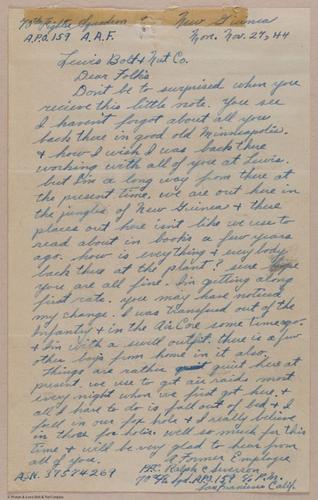 70th Fighter Squadron New Guinea
A.P.O. 159 A.A.F. Mon. Nov. 27, 44
Lewis Bolt & Nut Co.
Dear Folks
Don't be to surprised when you
recieve this little note. You see
I haven't forgot about all you
back there in good old Minneapolis.
& how I wish I was back there
working with all of you at Lewis.
but I'm a long way from there at
the present time, we are out here in
the jungles of New Guinea & these
places out here isn't like we use to
read about in books a few years
ago. how is everything & everybody
back there at the plant? sure hope
you are all fine. I'm getting along
first rate. you may have noticed
my change. I was transfured out of the
Infantry & in the Air Core some time ago.
& I'm with a swell outfit. there is a few
other boys from home in it also.
things are rather quiet here at
present. we use to get air raids most
every night when we first got here. &
all I have to do is fall out of bed & I
fall in our fox hole & I really believe
in those fox holes. well so much for this
time & will be very glad to hear from
all of you. A Former Employee
Pfc. Ralph Iverson
A.S.N. 37574269 70th Ftr. Sqd. A.P.O. 159 % P.M.
San Francisco Calif.